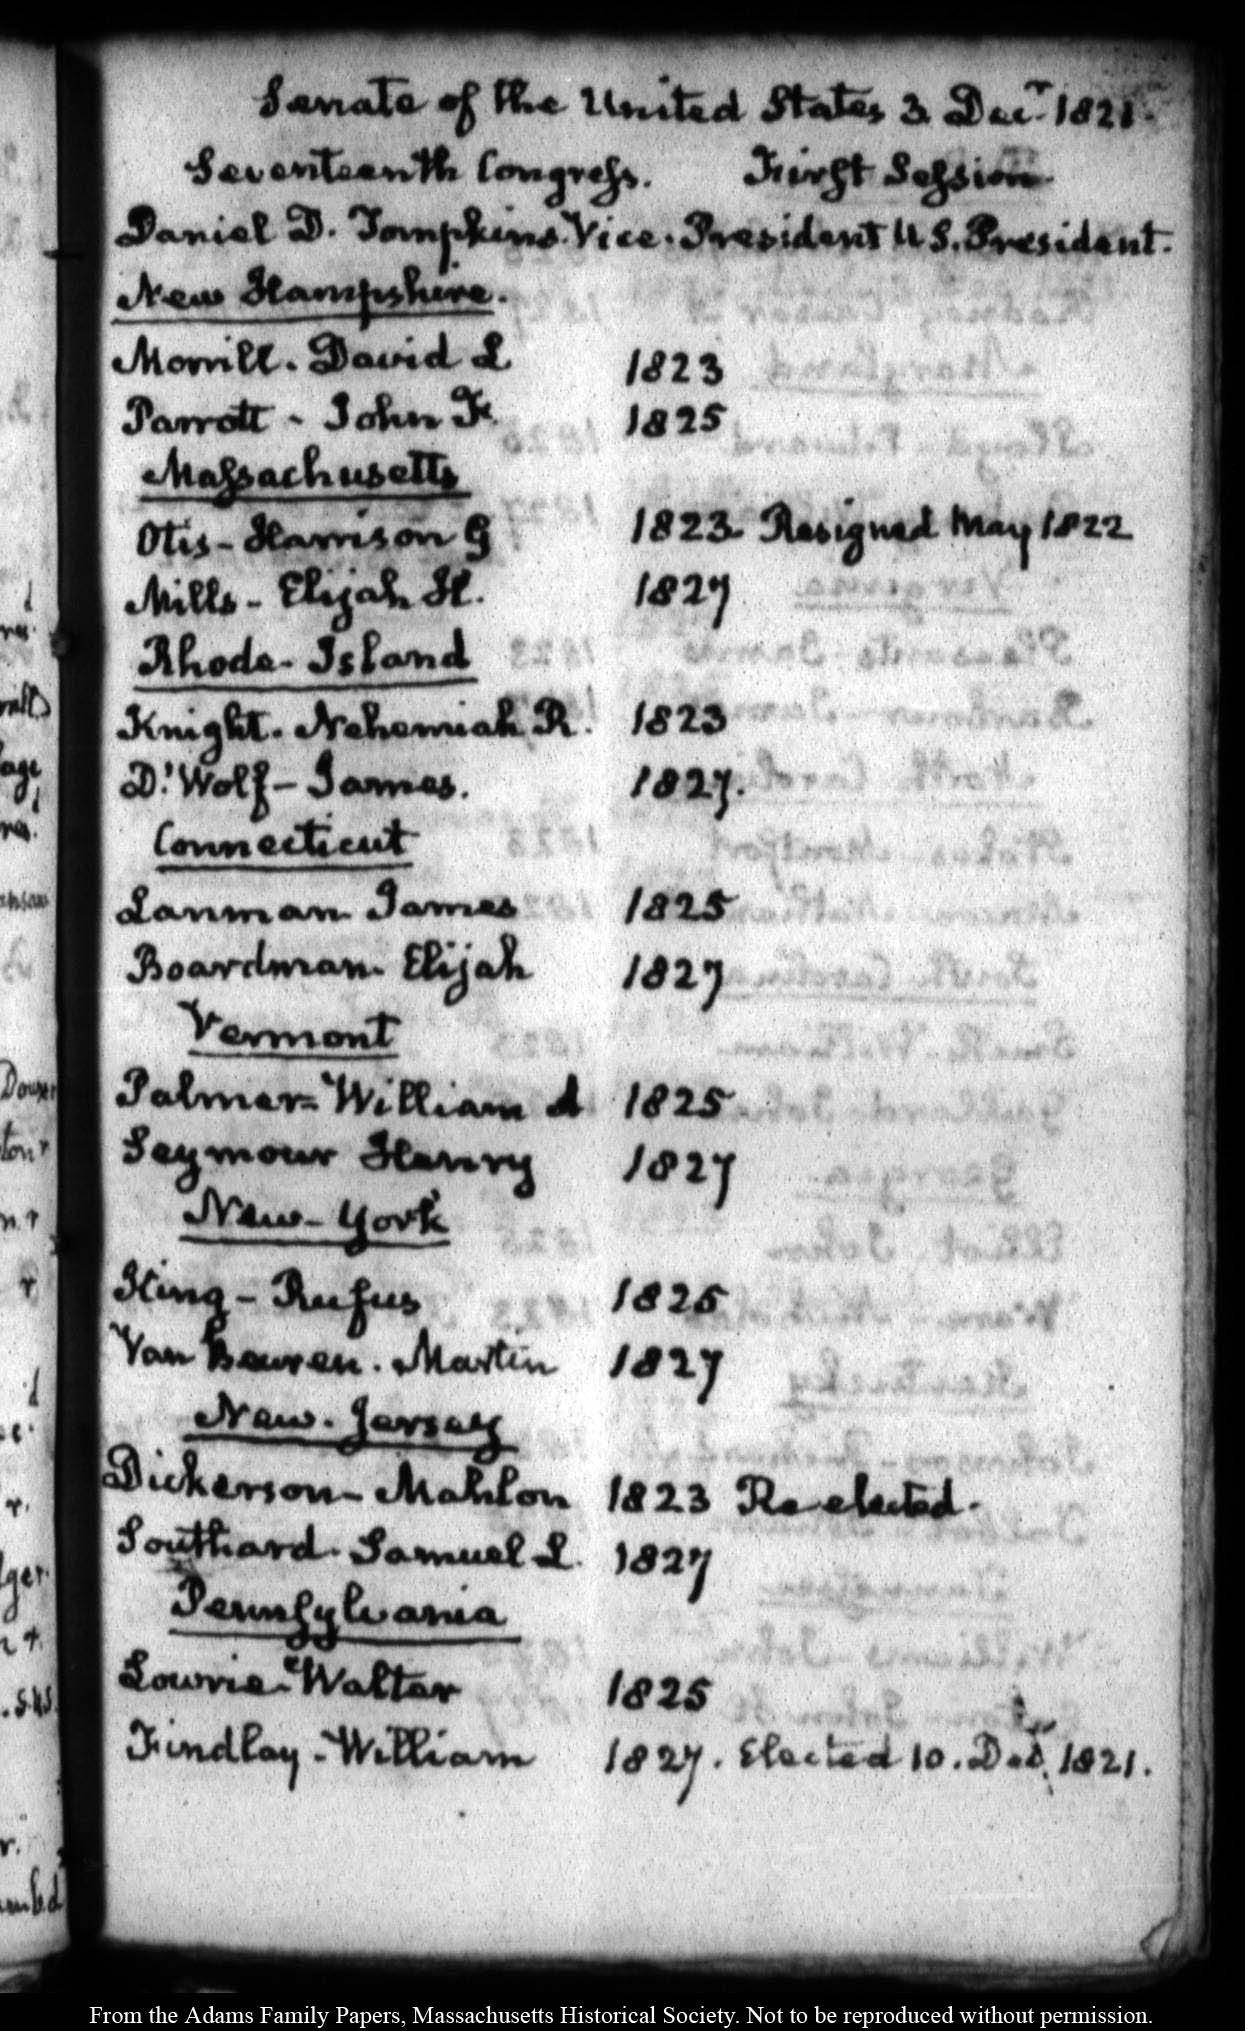 Senate of the United States 3 Decr. 1821.
Seventeenth Congress. First Session
Daniel D. Tompkins. Vice. President U.S. President.
New Hampshire.
Morrill. David L 1823
Parrott - John F. 1825
Massachusetts
Otis - Harrison G 1823. Resigned May 1822
Mills - Elijah H. 1827
Rhode-Island
Knight. Nehemiah R. 1823
D'Wolf - James. 1827.
Connecticut
Lanman. James 1825
Boardman. Elijah 1827
Vermont
Palmer - William A 1825
Seymour Henry 1827
New-York
King - Rufus 1825
Van Beuren. Martin 1827
New-Jersey
Dickerson - Mahlon 1823 Re-elected.
Southard. Samuel L. 1827
Pennsylvania
Lowrie - Walter 1825
Findlay - William 1827. Elected 10. Decr. 1821.
From the Adams Family Papers, Massachusetts Historical Society. Not to be reproduced without permission.